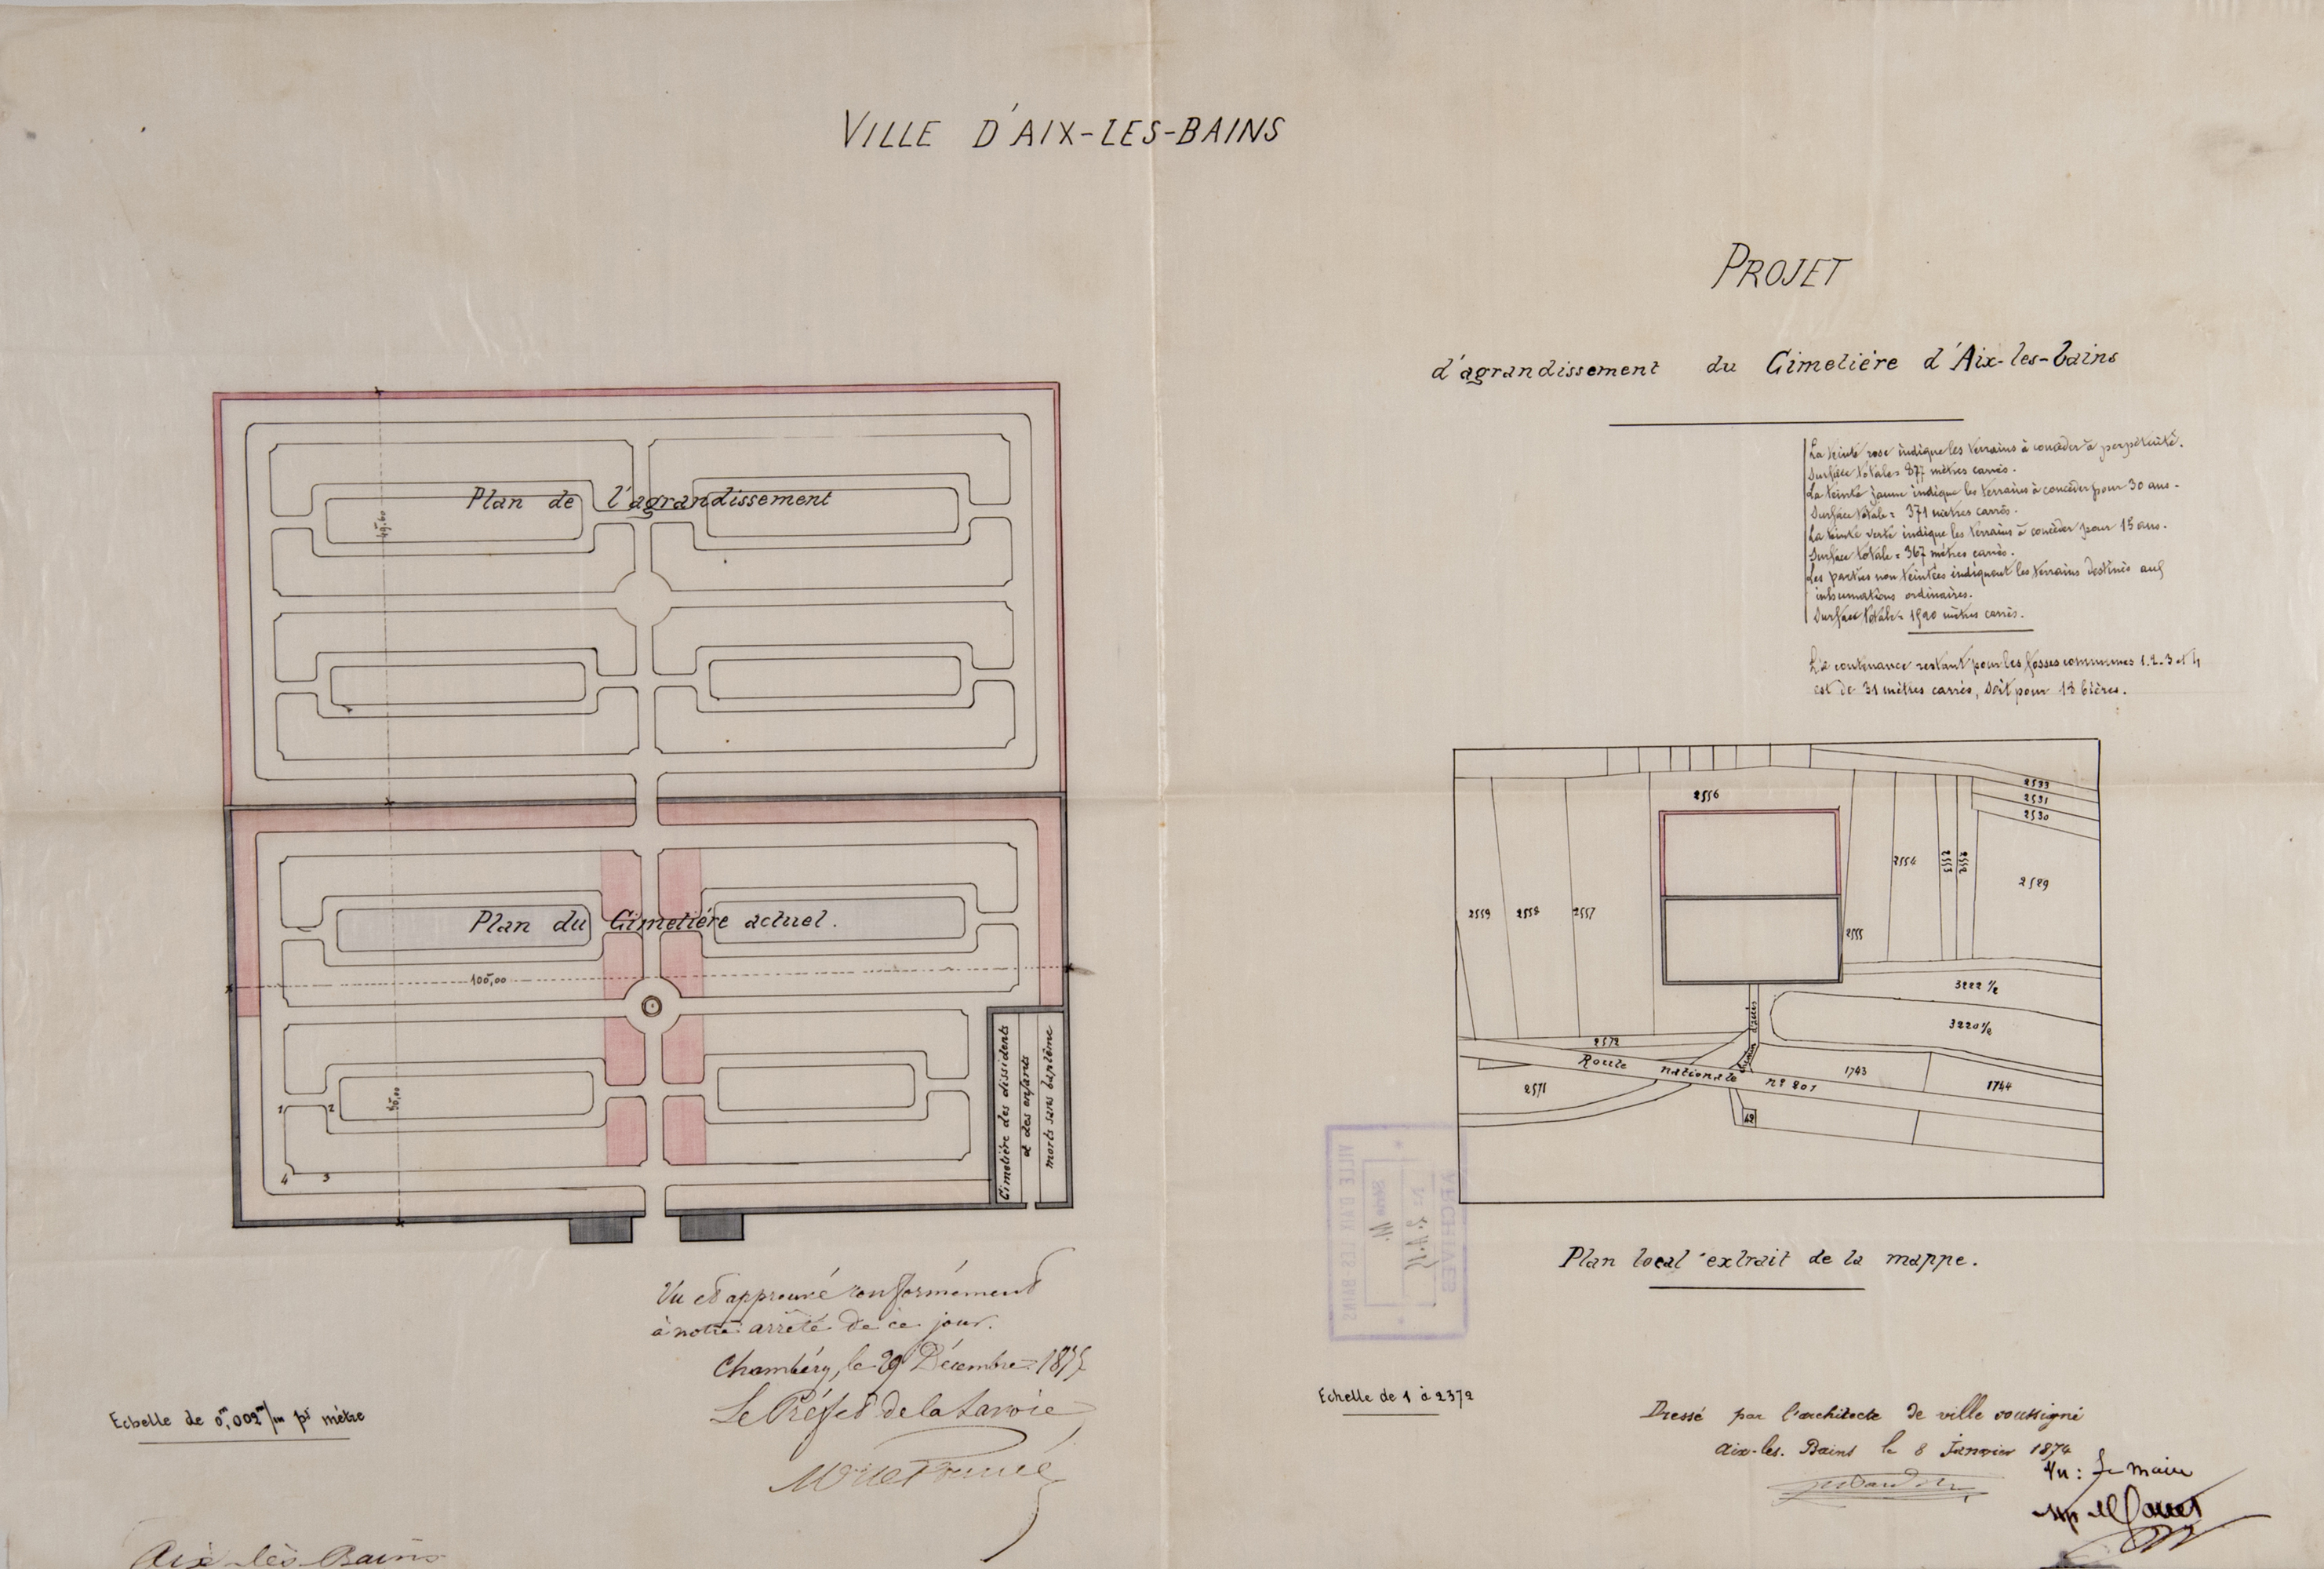 VILLE D'AIX-LES-BAINS
PROJET
d'agrandissement du Cimetiére d'Aix-les-bains
La teinte rose indique les terrains à concéder à perpétuité.
Surface totale = 877 mètres carrés.
La teinte jaune indique les terrains à concéder pour 30 ans.
Surface totale = 371 mètres carrés.
La teinte verte indique les terrains à concéder pour 15 ans.
Surface totale = 367 mètres carrés.
Les parties non teintées indiquent les terrains destinés aux
inhumations ordinaires.
Surface totale = 1590 mètres carrés.
La contenance restant pour les fosses communes 1.2.3 et 4
est de 31 mètres carrés, soit pour 13 bières.
Plan de l'agrandissement
49,60
Plan du Cimetiére actuel.
100,00
50,00
1 2
4 3
Cimetiére des dissidents
et des enfants
morts sans baptême
2533
2531
2530
2556
2554
2553
2552
2529
2559
2558
2557
2555
3222 1/2
3220 1/2
2572
Route nationale nº 201
2571
1743
1744
Plan local extrait de la mappe.
ARCHIVES
Nº
Série M.
VILLE D'AIX LES BAINS
Vu et approuvé conformément
à notre arrêté de ce jour.
Chambéry, le 29 Décembre 1875
Le Préfet de la Savoie
Echelle de 0,m002m/m pr mètre
Echelle de 1 à 2372
Dressé par l'architecte de ville soussigné
Aix-les-Bains le 8 Janvier 1874
Vu : Le Maire
Aix-les-Bains